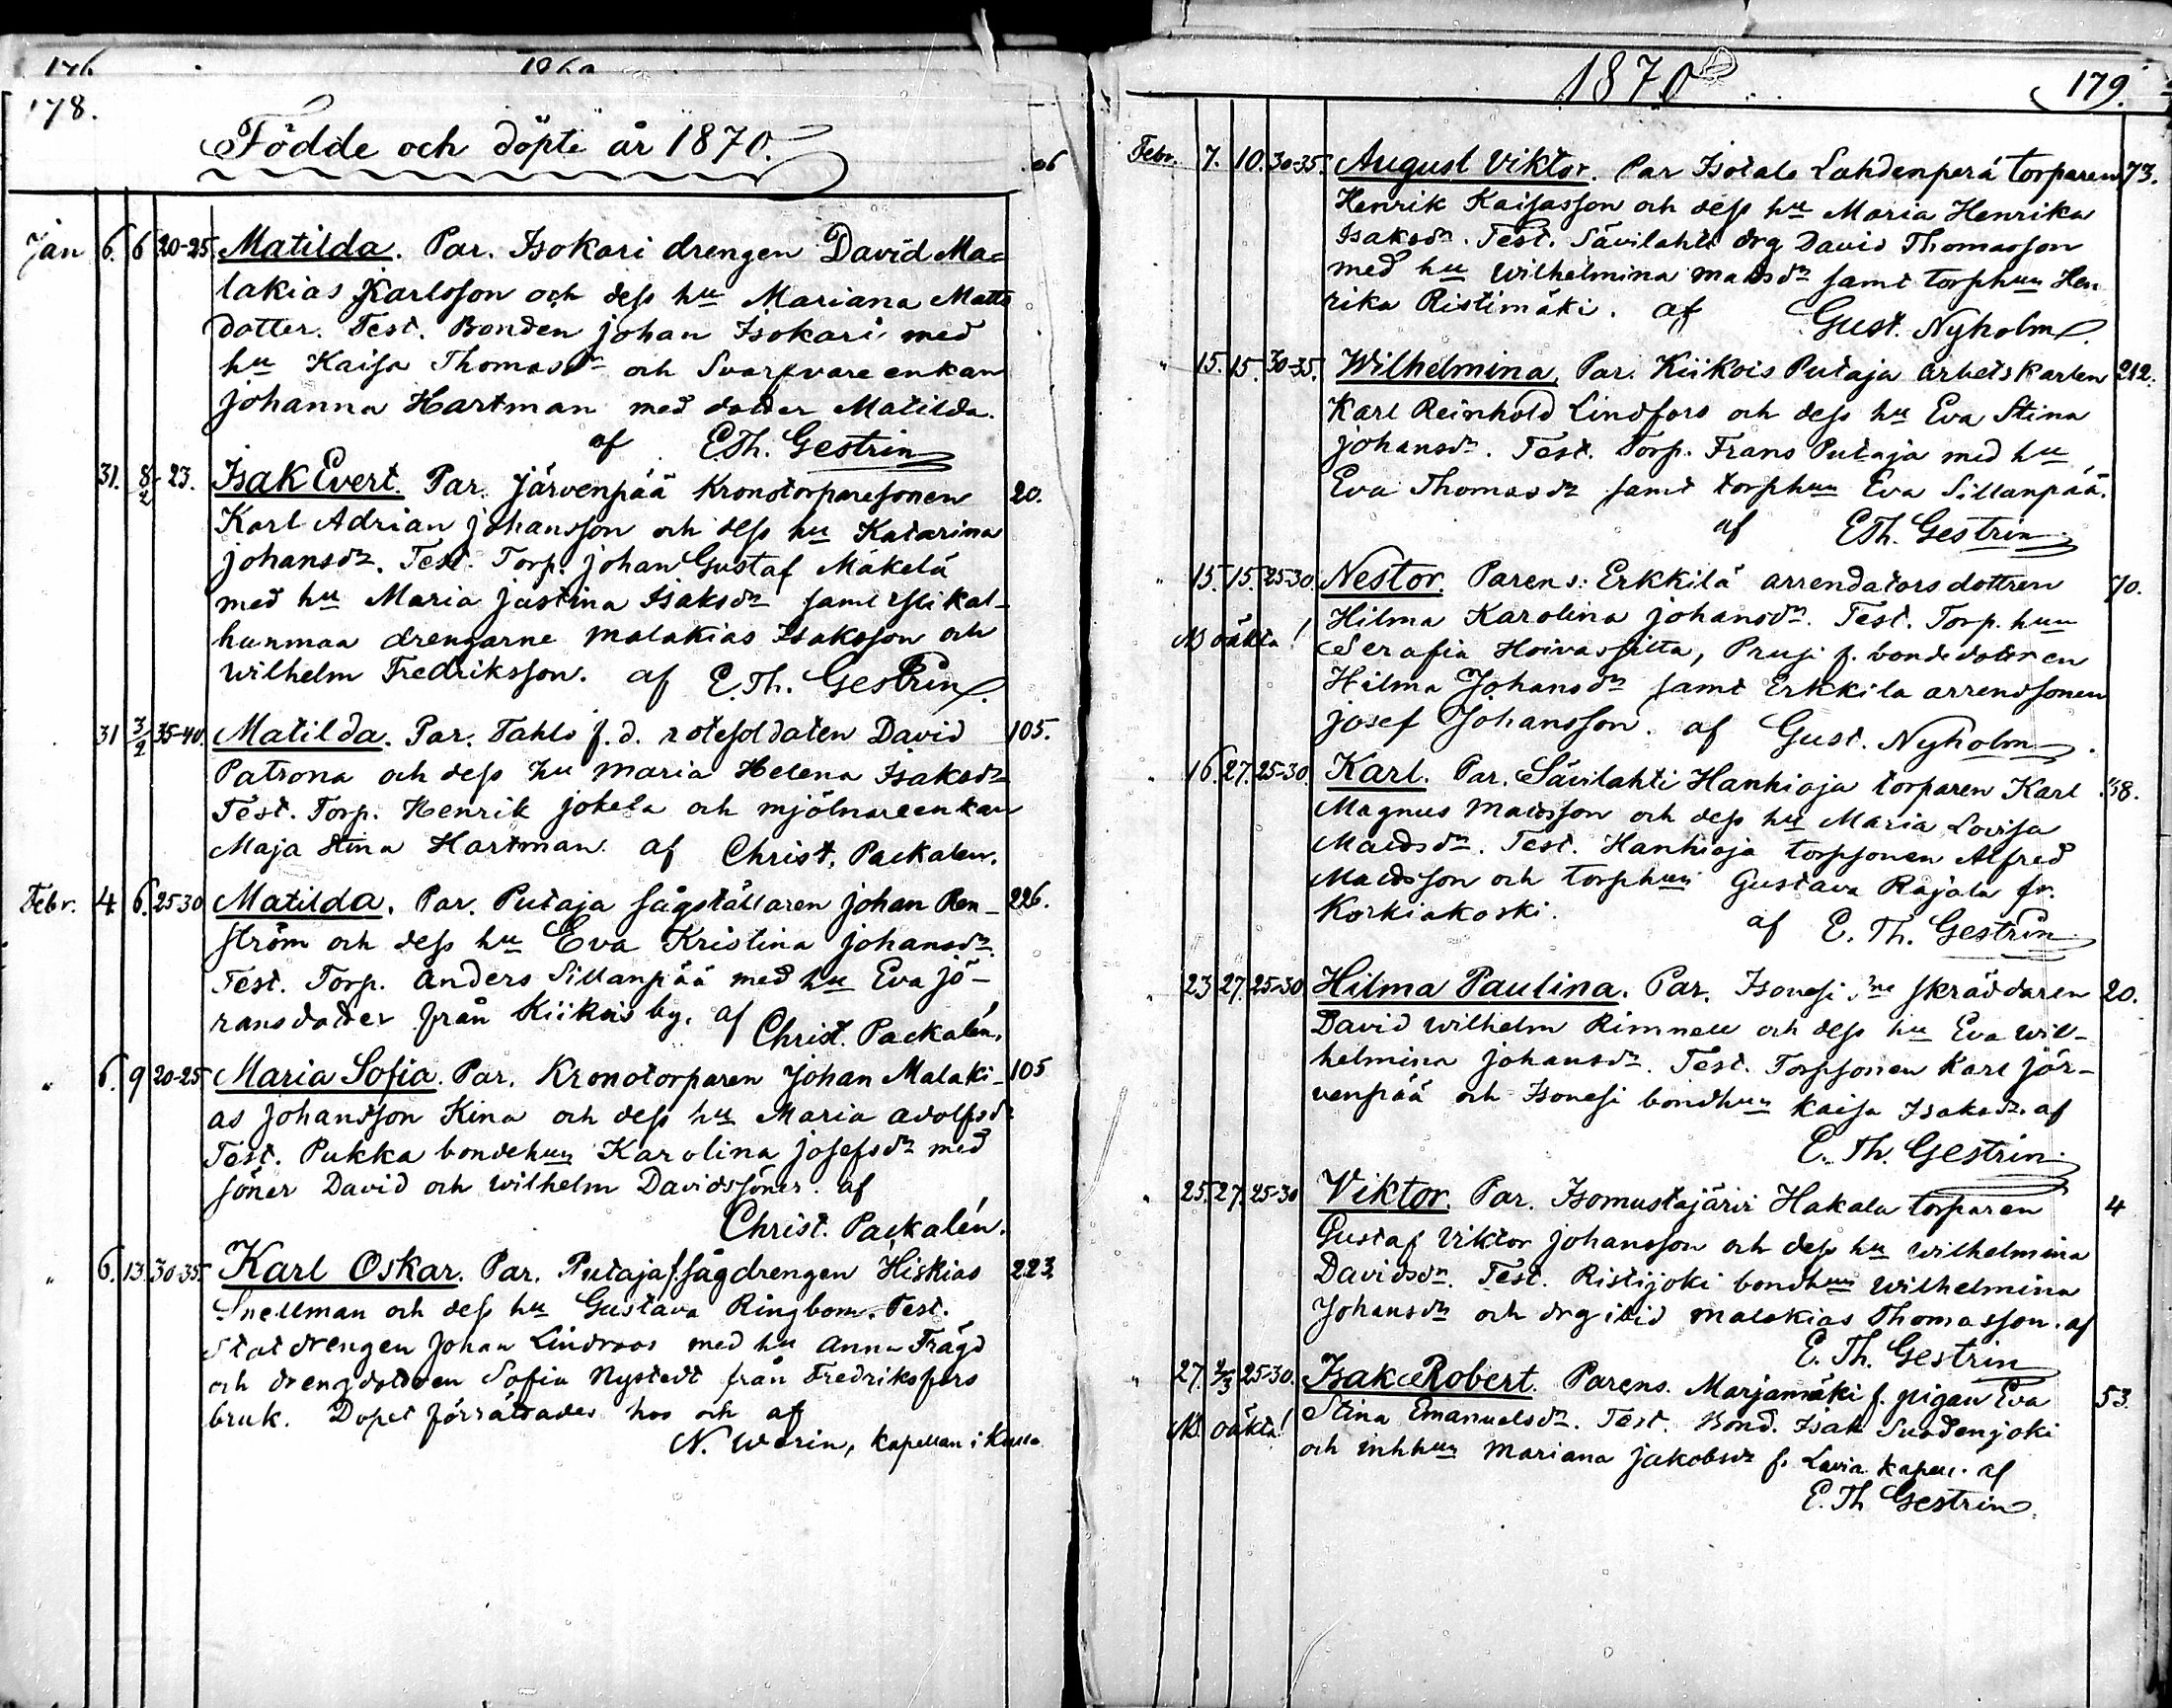 176 106a
178.
Födde och döpte år 1870.
Jan 6. 6 20-25 Matilda. Par. Isokari drengen David Ma=
lakias Karlsson och dess hu Mariana Matts
dotter. Test. Bonden Johan Isokari med
hu Kaisa Thomasdr och Svarfvare enkan
Johanna Hartman med dotter Matilda.
af E.Th. Gestrin
31. 8/2 23. Isak Evert. Par. Järvenpää Kronotorparesonen 20.
Karl Adrian Johansson och dess hu Katarina
Johansdr. Test. Torp. Johan Gustaf Mäkelä
med hu Maria Justina Isaksdr samt
hunmaa drengarne Malakias Isaksson och
Wilhelm Fredriksson. af E.Th. Gestrin.
31 3/2 35-40. Matilda. Par. Tahlo f.d. rotesoldaten David 105.
Patrona och dess hu Maria Helena Isaksdr
Test. Torp. Henrik Jokela och mjölnareenkan
Maja Stina Hartman. af Christ. Packalen.
Febr. 4. 6. 25-30 Matilda. Par. Putaja sågställaren Johan Ren- 226.
ström och dess hu Eva Kristina Johansdr.
Test. Torp. Anders Sillanpää med hu Eva Jö-
ransdotter från Kiikois by. af Christ. Packalén.
" 6. 9 20-25 Maria Sofia. Par. Kronotorparen Johan Malaki- 105
as Johansson Kina och dess hu Maria Adolfsdr
Test. Pukka bondehun Karolina Josefsdr med
söner David och Wilhelm Davidssöner. af
Christ. Packalén.
" 6. 13. 30-35. Karl Oskar. Par. Putaja f. sågdrengen Hiskias 223
Snellman och dess hu Gustava Ringbom. Test.
Statdrengen Johan Lindroos med hu Anna Frägd
och drengdottren Sofia Nystedt från Fredriksfors
bruk. Dopet förrättades hos och af
N. Warin, kapellan i Kulla
1870 179.
Febr. 7. 10. 30-35. August Viktor. Par Isotalo Lahdenperä torparen 73.
Henrik Kaisasson och dess hu Maria Henrika
Isaksdr. Test. Sävilahti drg David Thomasson
med hu Wilhelmina Matsdr samt torphun Hen
rika Ristimäki. af Gust. Nyholm.
" 15. 15. 30-35. Wilhelmina. Par. Kiikois Putaja arbetskarlen 212.
Karl Reinhold Lindfors och dess hu Eva Stina
Johansdr. Test. Torp. Frans Putaja med hu
Eva Thomasdr samt torphun Eva Sillanpää.
af E.Th. Gestrin
" 15. 15. 25-30. Nestor. Parens: Erkkilä arrendators dottren 70.
NB oäkta! Hilma Karolina Johansdr. Test. Torp. hun
Serafia Hoivassilta, Prusi f. bondedottren
Hilma Johansdr samt Erkkila arrendsonen
Josef Johansson. af Gust. Nyholm.
" 16. 27. 25-30. Karl. Par. Sävilahti Hanhioja torparen Karl 58.
Magnus Matsson och dess hu Maria Lovisa
Matsdr. Test. Hanhioja torpsonen Alfred
Matsson och torphun Gustava Rajala fr.
Korkiakoski. af E. Th. Gestrin
" 23 27. 25-30 Hilma Paulina. Par. Isonesi skräddaren 20.
David Wilhelm Rimnell och dess hu Eva Wil-
helmina Johansdr. Test. Torpsonen Karl Jär-
venpää och Isonesi bondhun Kaisa Isaksdr. af
E. Th. Gestrin.
" 25. 27. 25-30 Viktor. Par. Isomustajärvi Hakala torparen 4
Gustaf Viktor Johansson och dess hu Wilhelmina
Davidsdr. Test. Ristijoki bondhun Wilhelmina
Johansdr och drg ibid Malakias Thomasson. af
E. Th. Gestrin
" 27. 2/3 25-30. Isak Robert. Parens. Marjamäki f. pigan Eva 53.
NB. oäkta! Stina Emanuelsdr. Test. Bond. Isak Suodenjoki
och inhhun Mariana Jakobsdr f. Lavia kapell. af
E. Th Gestrin.